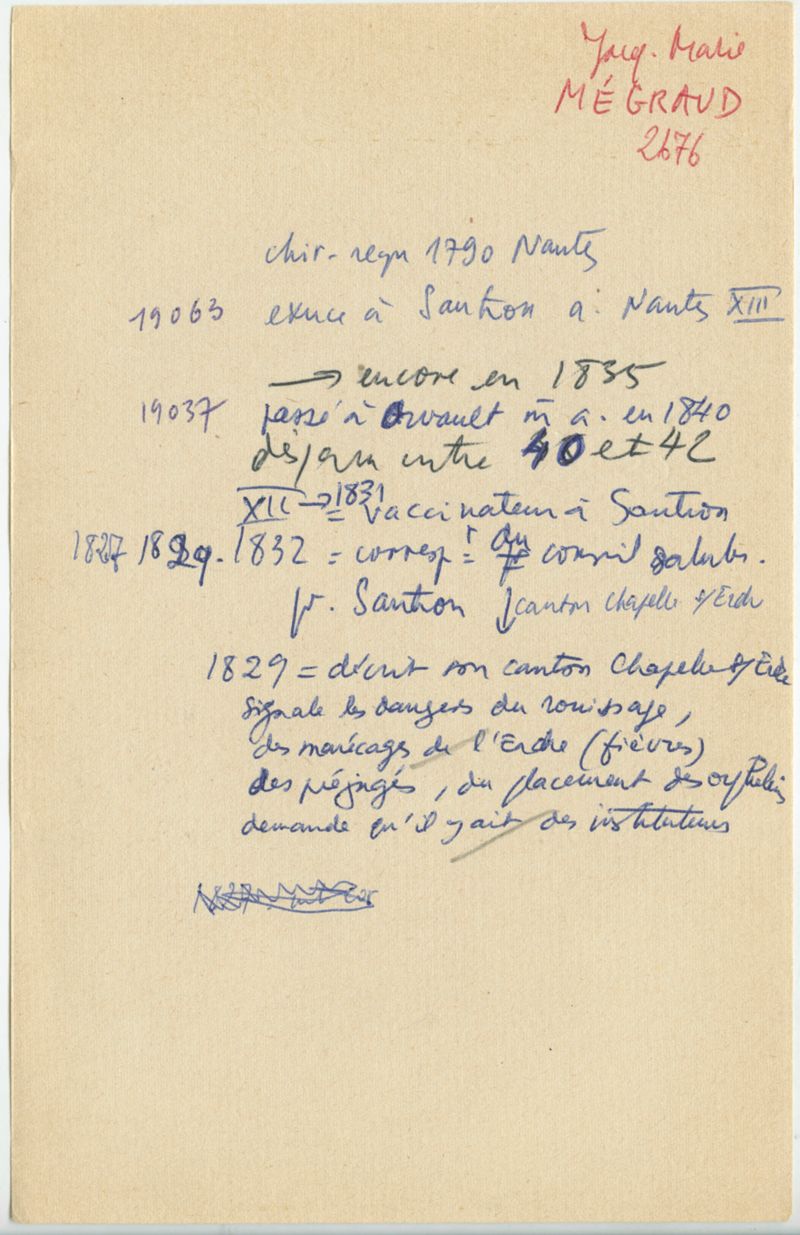 Jacq. Marie
MÉGRAUD
2676
chir- reçu 1790 Nantes
19063 exerce à Sautron a. Nantes XIII
→ encore en 1835
19037 passé à Orvault m a. en 1840
disparu entre 40 et 42
XII → 1831 = vaccinateur à Sautron
1827 1829. 1832 = corresp = du conseil salub.
pr. Sautron canton Chapelle s/ Erdre
1829 = décrit son canton Chapelle s/ Erdre
signale les dangers du rouissage,
des marécages de l'Erdre (fièvres)
des préjugés, du placement des orphelins
demande qu'il y ait des instituteurs